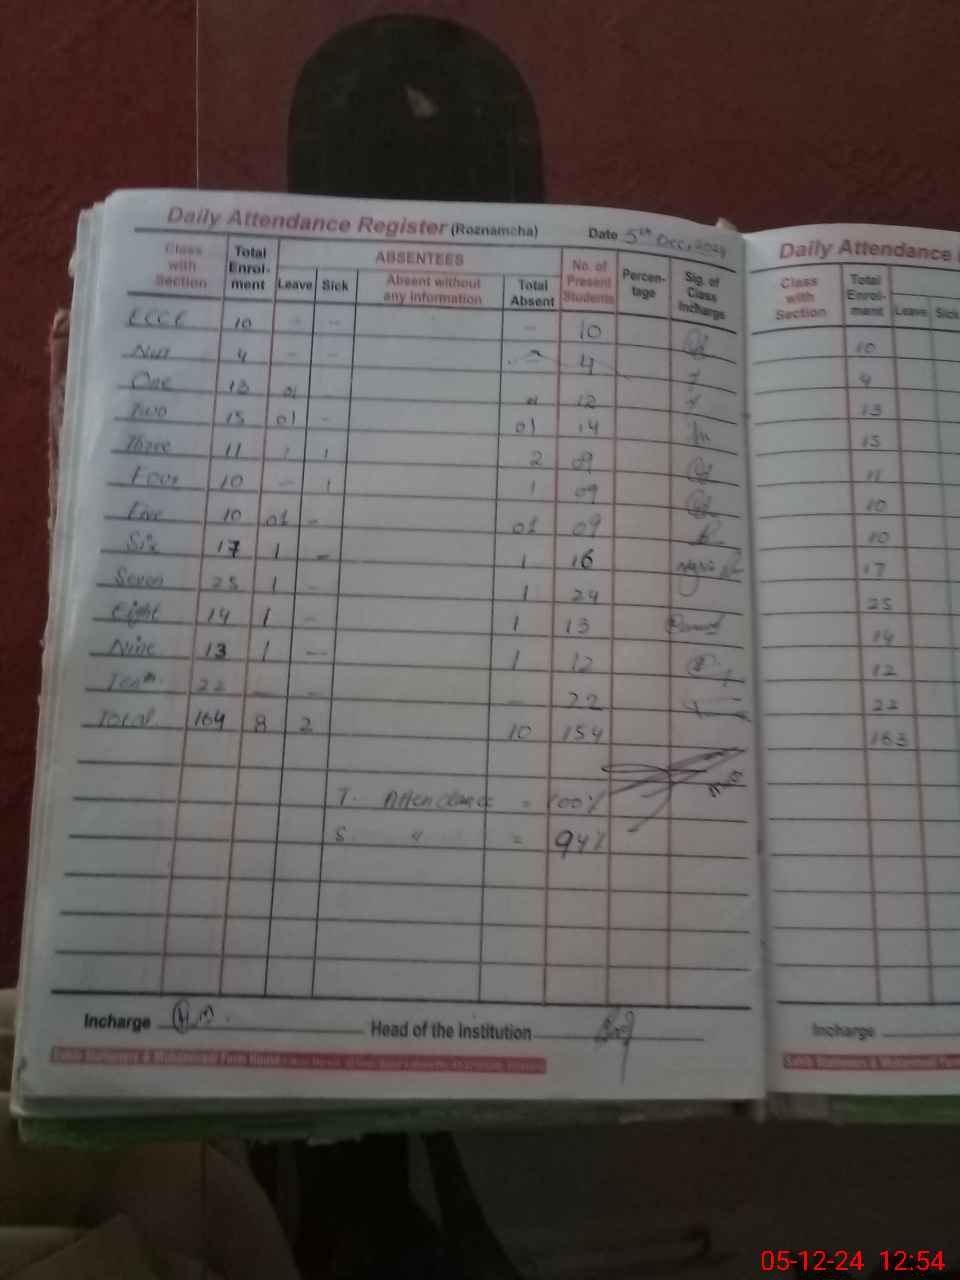 Daily Attendance Register (Roznamcha) Date 5th Dec, 2024
Class with Section Total Enrol-ment ABSENTEES No. of Present Students Percen-tage Sig. of Class Incharge
Leave Sick Absent without any information Total Absent
ECCE 10 - - - 10
Nur 4 - - - 4
One 13 01 01 12
Two 15 01 - 01 14
Three 11 1 1 2 09
Four 10 - 1 1 09
Five 10 01 - 01 09
Six 17 1 - 1 16
Seven 25 1 - 1 24
Eight 14 1 - 1 13
Nine 13 1 - 1 12
Tenth 22 - - - 22
Total 164 8 2 10 154
T. Attendance = 100%
S. " = 94%
Incharge H.M. Head of the Institution
Daily Attendance
Class with Section Total Enrol-ment Leave Sick
10
4
13
15
11
10
10
17
25
14
12
22
163
Incharge
05-12-24 12:54